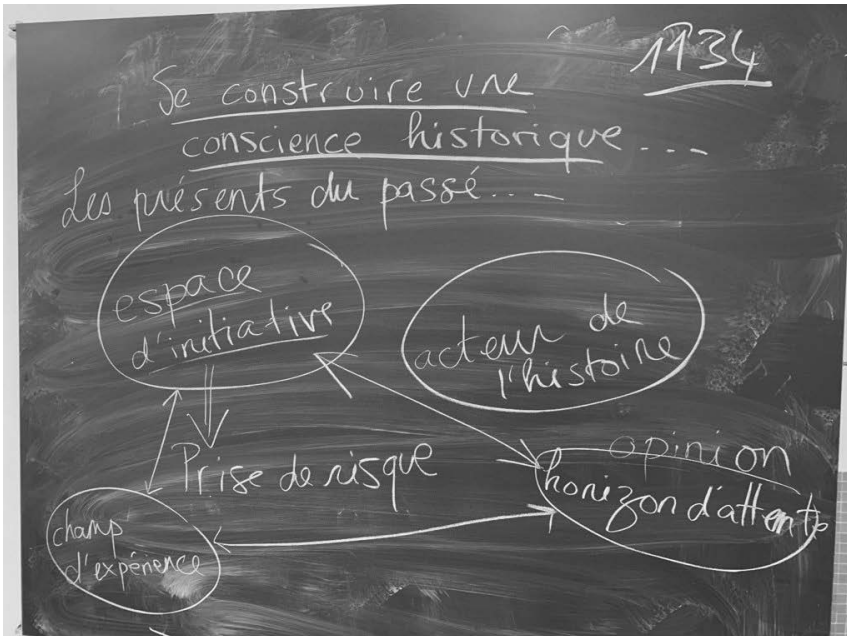 1934
Se construire une
conscience historique...
Les présents du passé...
espace
d'initiative
acteur de
l'histoire
Prise de risque
opinion
horizon d'attente
champ
d'expérience